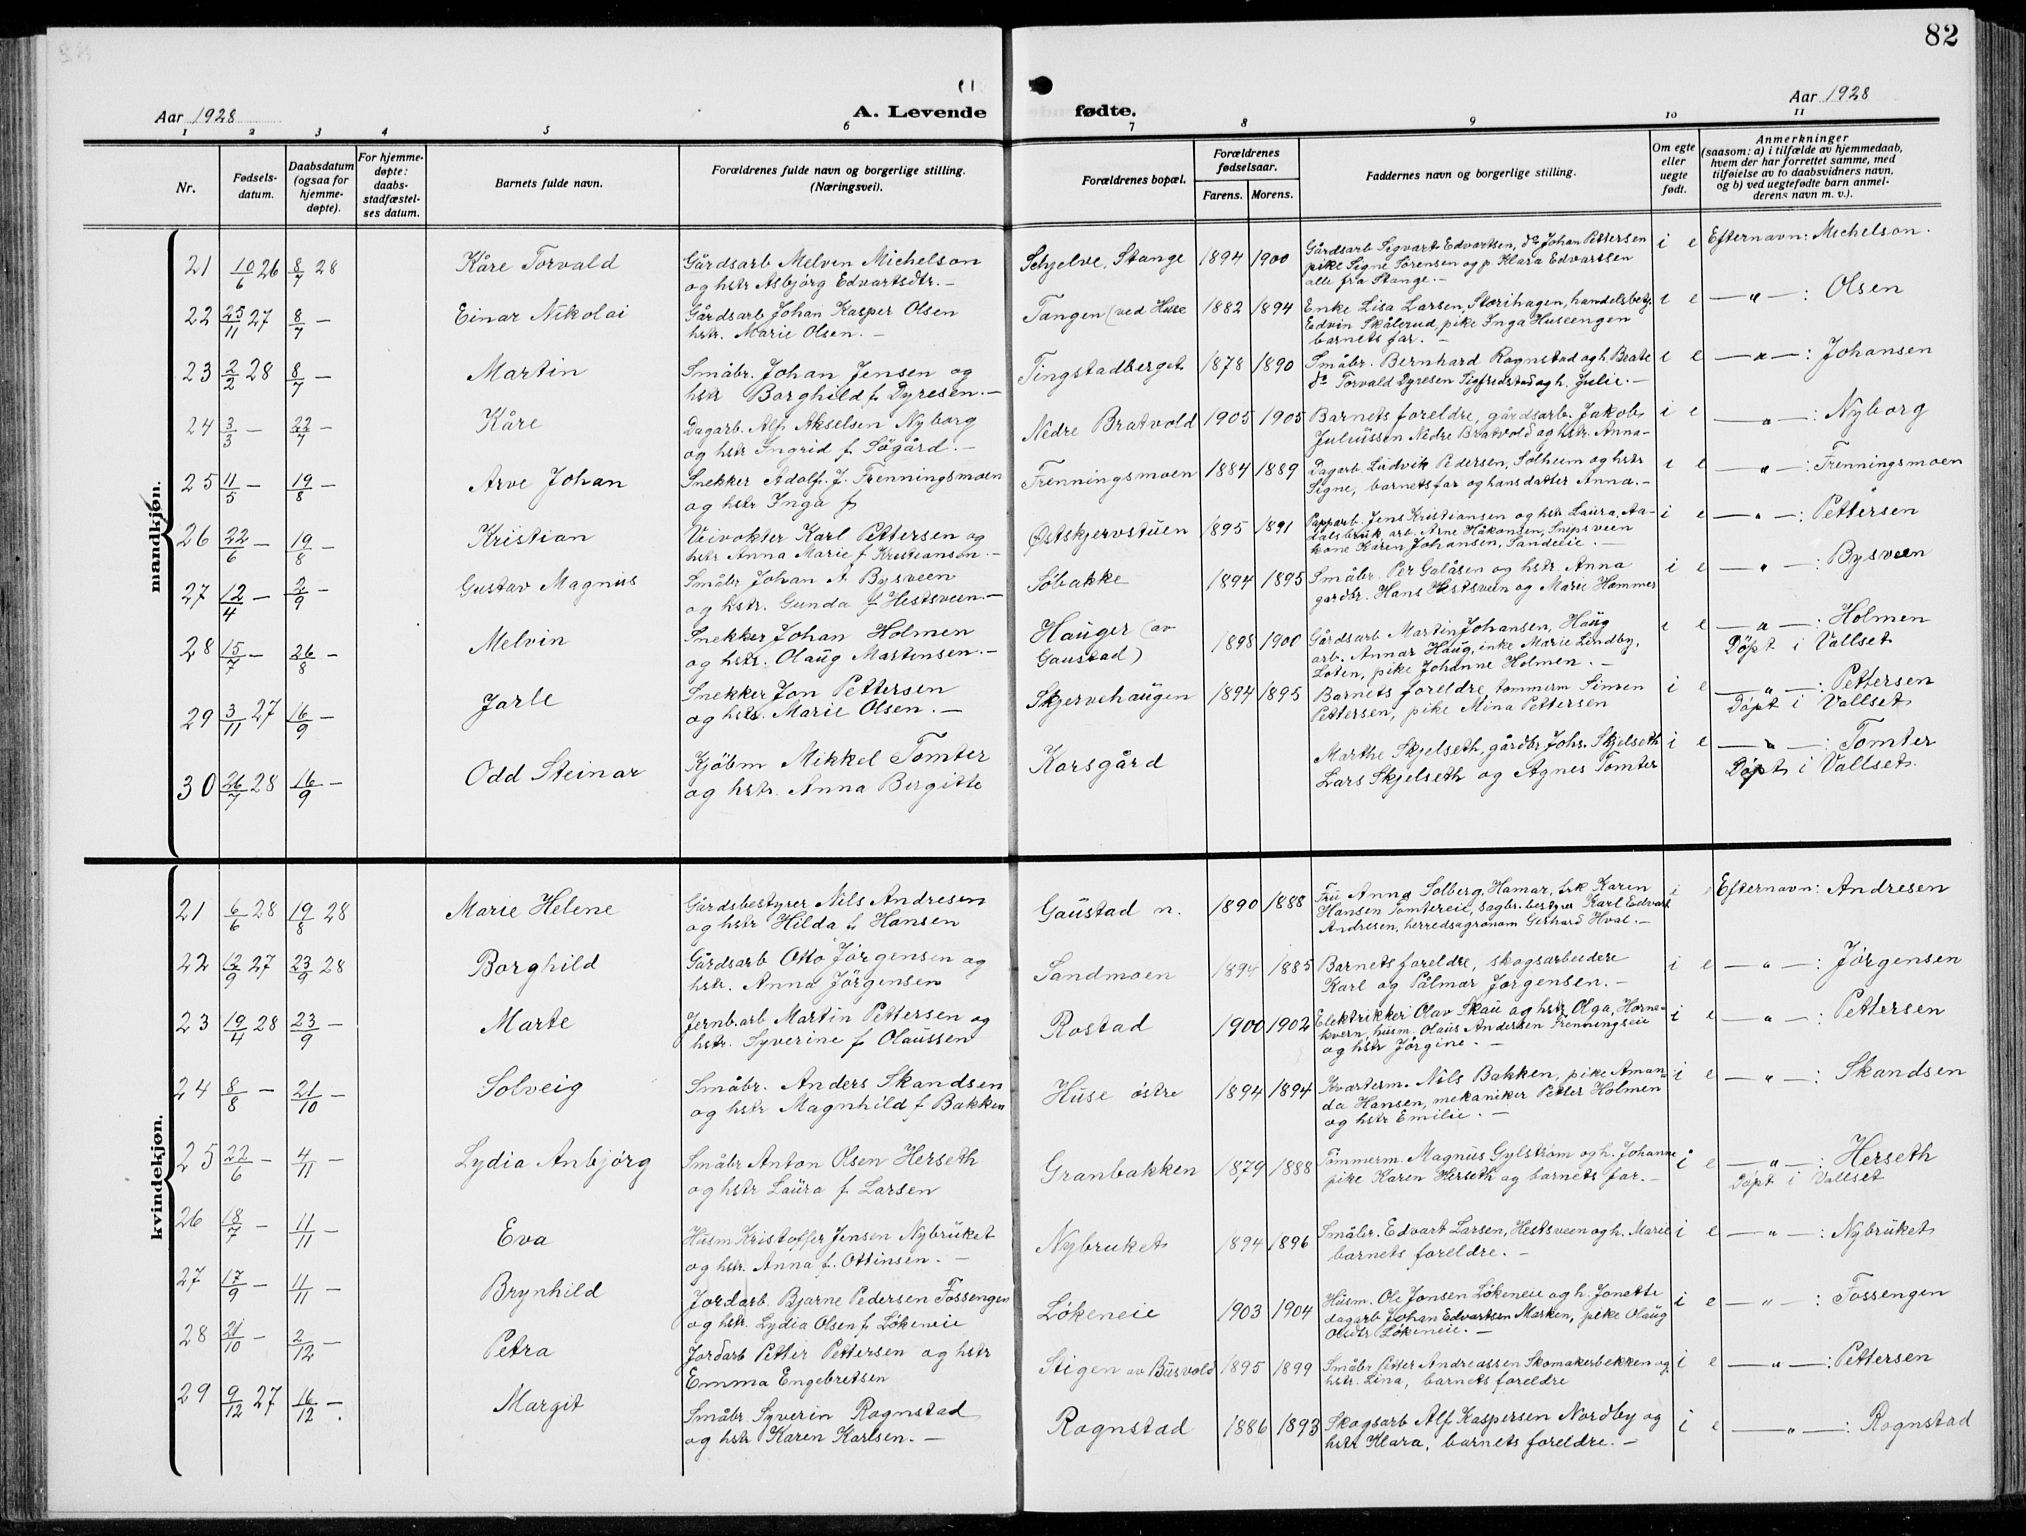 82
Aar 1928
A. Levende fødte.
Aar 1928
1 2 3 4 5 6 7 8 9 10 11
Nr.
Fødsels-
datum.
Daabsdatum
(ogsaa for
hjemme-
døpte).
For hjemme-
døpte:
daabs-
stadfæstel-
ses datum.
Barnets fulde navn.
Forældrenes fulde navn og borgerlige stilling.
(Næringsvei).
Forældrenes bopæl.
Forældrenes
fødselsaar.
Farens. Morens.
Faddernes navn og borgerlige stilling.
Om egte
eller
uegte
født.
Anmerkninger
(saasom: a) i tilfælde av hjemmedaab,
hvem der har forrettet samme, med
tilføielse av to daabsvidners navn,
og b) ved uegtefødte barn anmel-
derens navn m. v.).
mandkjøn.
21 10/6 26 8/7 28 Kåre Torvald
Gårdsarb Melvin Michelson
og hstr Asbjörg Edvartsdtr. —
Schjelve, Stange 1894 1900
Gårdsarb Sigvart Edvartsen, do Johan Pettersen
pike Signe Sörensen og p Klara Edvartsen
alle fra Stange. —
i e Efternavn: Michelson.
22 25/11 27 8/7 — Einar Nikolai
Gårdsarb Johan Kasper Olsen
hstr. Marie Olsen. —
Tangen (ved Huse 1882 1894
Enke Lisa Larsen, Storihagen, handelsbetj
Edvin Skålerud, pike Inga Huseengen
barnets far. —
i e — " — : Olsen
23 2/2 28 8/7 — Martin
Småbr. Johan Jensen og
hstr Borghild f Dyresen. —
Tingstadberget 1878 1890
Småbr. Bernhard Rognstad og h. Beate
do Torvald Dyresen Sigfredstad og h. Julie. —
i e — " — : Johansen
24 3/3 — 22/7 — Kåre
Dagarb. Alf Akselsen Nyborg
og hstr Ingrid f Sögård. —
Nedre Bratvold 1905 1905
Barnets foreldre, gårdsarb. Jakob
Juliussen Nedre Bratvold og hstr. Anna —
i e — " — : Nyborg
25 11/5 — 19/8 — Arve Johan
Snekker Adolf. J. Frenningsmoen
og hstr Inga f
Frenningsmoen 1884 1889
Dagarb. Ludvik Pedersen, Solheim og hstr
Signe, barnets far og hans datter Anna. —
i e — " — : Frenningsmoen
26 22/6 — 19/8 — Kristian
Veivokter Karl Pettersen og
hstr Anna Marie f Kristiansen. —
Østskjervstuen 1895 1891
Papparb. Jens Kristiansen og hstr Laura, Aa-
dalsbruk, arb. Arne Håkonsen, Snipsveen
kone Karen Johansen, Sandeeie. —
i e — " — : Pettersen
27 12/4 — 2/9 — Gustav Magnus
Småbr Johan A Bysveen
og hstr. Gunda f Hestsveen. —
Søbakke 1894 1895
Småbr. Per Galåsen og hstr. Anna
gardbr. Hans Hestsveen og Marie Hammer
i e — " — : Bysveen
28 15/7 — 26/8 — Melvin
Snekker Johan Holmen
og hstr. Olaug Martinsen. —
Hauger (av
Gaustad) 1898 1900
Gårdsarb Martin Johansen, Haug
arb. Annar Haug, enke Marie Lindby,
Loten, pike Johanne Holmen. —
i e — " — : Holmen
Döpt i Vallset
29 3/11 27 16/9 — Jarle
Snekker Jon Pettersen
og hstr. Marie Olsen. —
Skjervehaugen 1894 1895
Barnets foreldre, tömmerm Simen
Pettersen, pike Mina Pettersen
i e — " — : Pettersen
Döpt i Vallset
30 26/7 28 16/9 — Odd Steinar
Kjöbm Mikkel Tomter
og hstr. Anna Birgitte
Korsgård
Marthe Skjelseth, gårdbr Johs. Skjelseth
Lars Skjelseth og Agnes Tomter
i e — " — : Tomter
Döpt i Vallset.
kvindekjøn.
21 6/6 28 19/8 28 Marie Helene
Gårdsbestyrer Nils Andresen
og hstr Hilda f Hansen
Gaustad n. 1890 1888
Fru Anna Solberg, Hamar, frk Karen
Hansen Tomtereie, sagbr. bestyrer Karl Edvart
Andresen, herredsagronom Gerhard Hval. —
i Efternavn: Andresen
22 12/9 27 23/9 28 Borghild
Gårdsarb Otto Jörgensen og
hstr. Anna Jörgensen
Sandmoen 1894 1885
Barnets foreldre, skogsarbeidere
Karl og Palmar Jorgensen. —
i e — " — : Jørgensen
23 19/4 28 23/9 — Marte
Jernb.arb Martin Pettersen og
hstr. Syverine f Olaussen
Rostad 1900 1902
Elektrikker Olav Skau og hstr Olga, Horne-
kvern, husm. Olaus Andersen Frenningseie
og hstr Jörgine. —
i e — " — : Pettersen
24 8/8 — 21/10 — Solveig
Småbr. Anders Skandsen
og hstr Magnhild f Bakken
Huse østre 1894 1894
Kvarterm. Nils Bakken, pike Aman-
da Hansen, mekaniker Petter Holmen
og hstr Emilie. —
i e — " — : Skandsen
25 22/6 — 4/11 — Lydia Anbjörg
Småbr Anton Olsen Herseth
og hstr Laura f Larsen
Granbakken 1879 1888
Tömmerm. Magnus Gylström og h. Johanne
pike Karen Herseth og barnets far. —
i e — " — : Herseth
Döpt i Vallset
26 18/7 — 11/11 — Eva
Husm Kristoffer Jensen Nybruket
og hstr. Anna f. Ottinsen. —
Nybruket 1894 1896
Småbr. Edvart Larsen, Hestsveen og h. Marie
barnets foreldre. —
i e — " — : Nybruket
27 17/9 — 11/11 — Brynhild
Jordarb. Bjarne Pedersen Fossengen
og hstr. Lydia Olsen f Lökeneie
Lökeneie 1903 1904
Husm. Ole Jonsen Lökeneie og h. Jonette
dagarb Johan Edvartsen Marken, pike Olaug
Olsdtr Lökeneie. —
i e — " — : Fossengen
28 21/10 — 2/12 — Petra
Jordarb Petter Pettersen og hstr
Emma Engebretsen
Stigen av Busvold 1895 1899
Småbr Petter Andreassen Skomakerbekken og
hstr. Lina, barnets foreldre
i e — " — : Pettersen
29 9/12 27 16/12 — Margit
Småbr Syverin Rognstad
og hstr Karen Karlsen. —
Rognstad 1886 1893
Skogsarb Alf Kaspersen Nordby og
hstr Klara, barnets foreldre. —
i e — " — : Rognstad